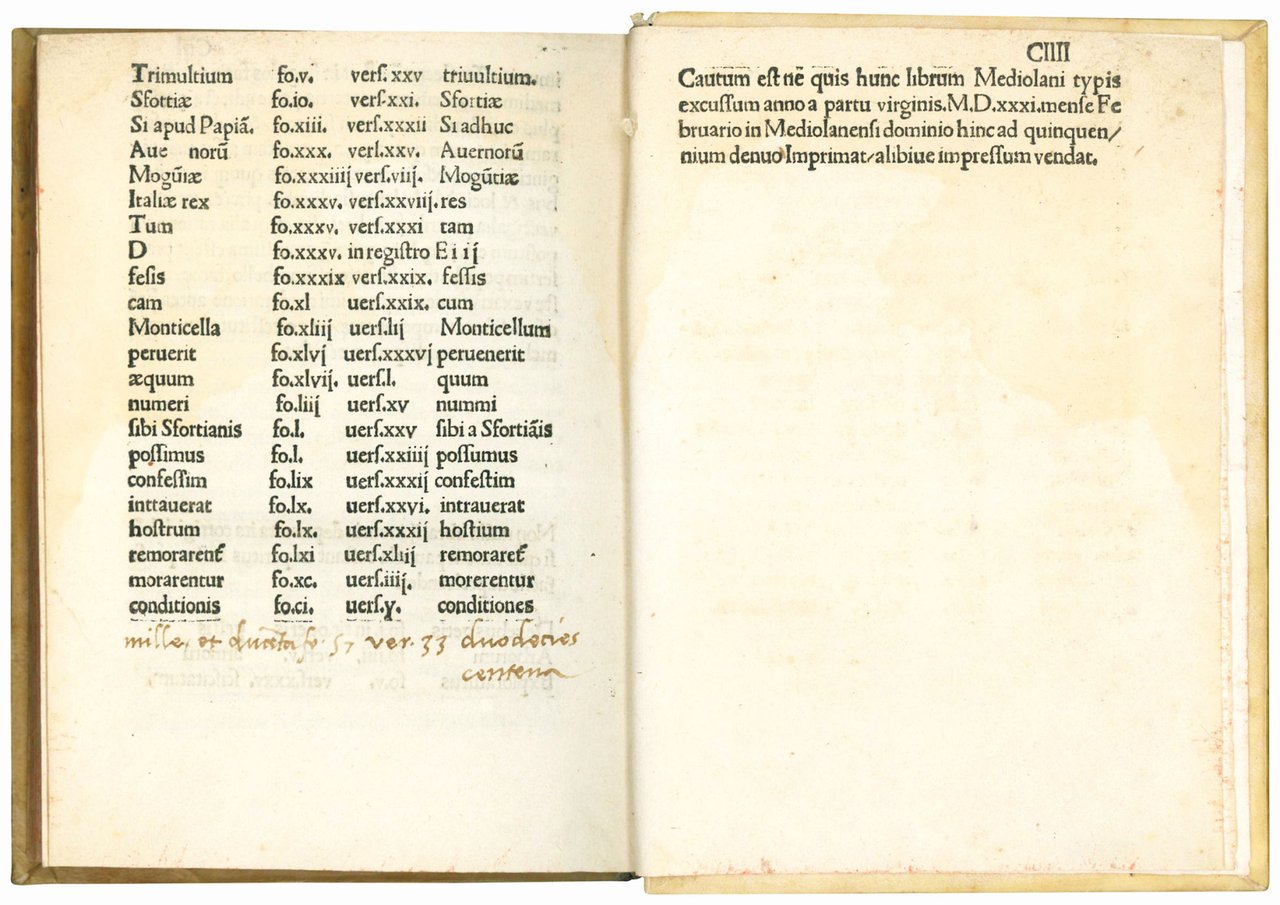 Trimultium fo.v. verſ.xxv triuultium.
Sfottiæ fo.io. verſ.xxi. Sfortiæ
Si apud Papiã. fo.xiii. verſ.xxxii Si adhuc
Aue norũ fo.xxx. verſ.xxv. Auernorũ
Mogũiæ fo.xxxiiij verſ.vij. Mogũtiæ
Italiæ rex fo.xxxv. verſ.xxviij. res
Tum fo.xxxv. verſ.xxxi tam
D fo.xxxv. in regiſtro E i i j
feſis fo.xxxix verſ.xxix. feſſis
cam fo.xl uerſ.xxix. cum
Monticella fo.xliij uerſ.lij Monticellum
peruerit fo.xlvj uerſ.xxxvj peruenerit
æquum fo.xlvij. uerſ.l. quum
numeri fo.liij uerſ.xv nummi
ſibi Sfortianis fo.l. uerſ.xxv ſibi a Sfortiãis
poſſimus fo.l. uerſ.xxiiij poſſumus
confeſſim fo.lix uerſ.xxxij confeſtim
inttauerat fo.lx. uerſ.xxvi. intrauerat
hoſtrum fo.lx. uerſ.xxxij hoſtium
remorarent̃ fo.lxi uerſ.xliij remoraret̃
morarentur fo.xc. uerſ.iiij. morerentur
conditionis fo.ci. uerſ.v. conditiones
mille, et ducẽta fo. 57 ver. 33 duodecies
centena
CIIII
Cautum eſt nẽ quis hunc librum Mediolani typis
excuſſum anno a partu virginis.M.D.xxxi.menſe Fe
bruario in Mediolanenſi dominio hinc ad quinquen/
nium denuo Imprimat/alibiue impreſſum vendat.